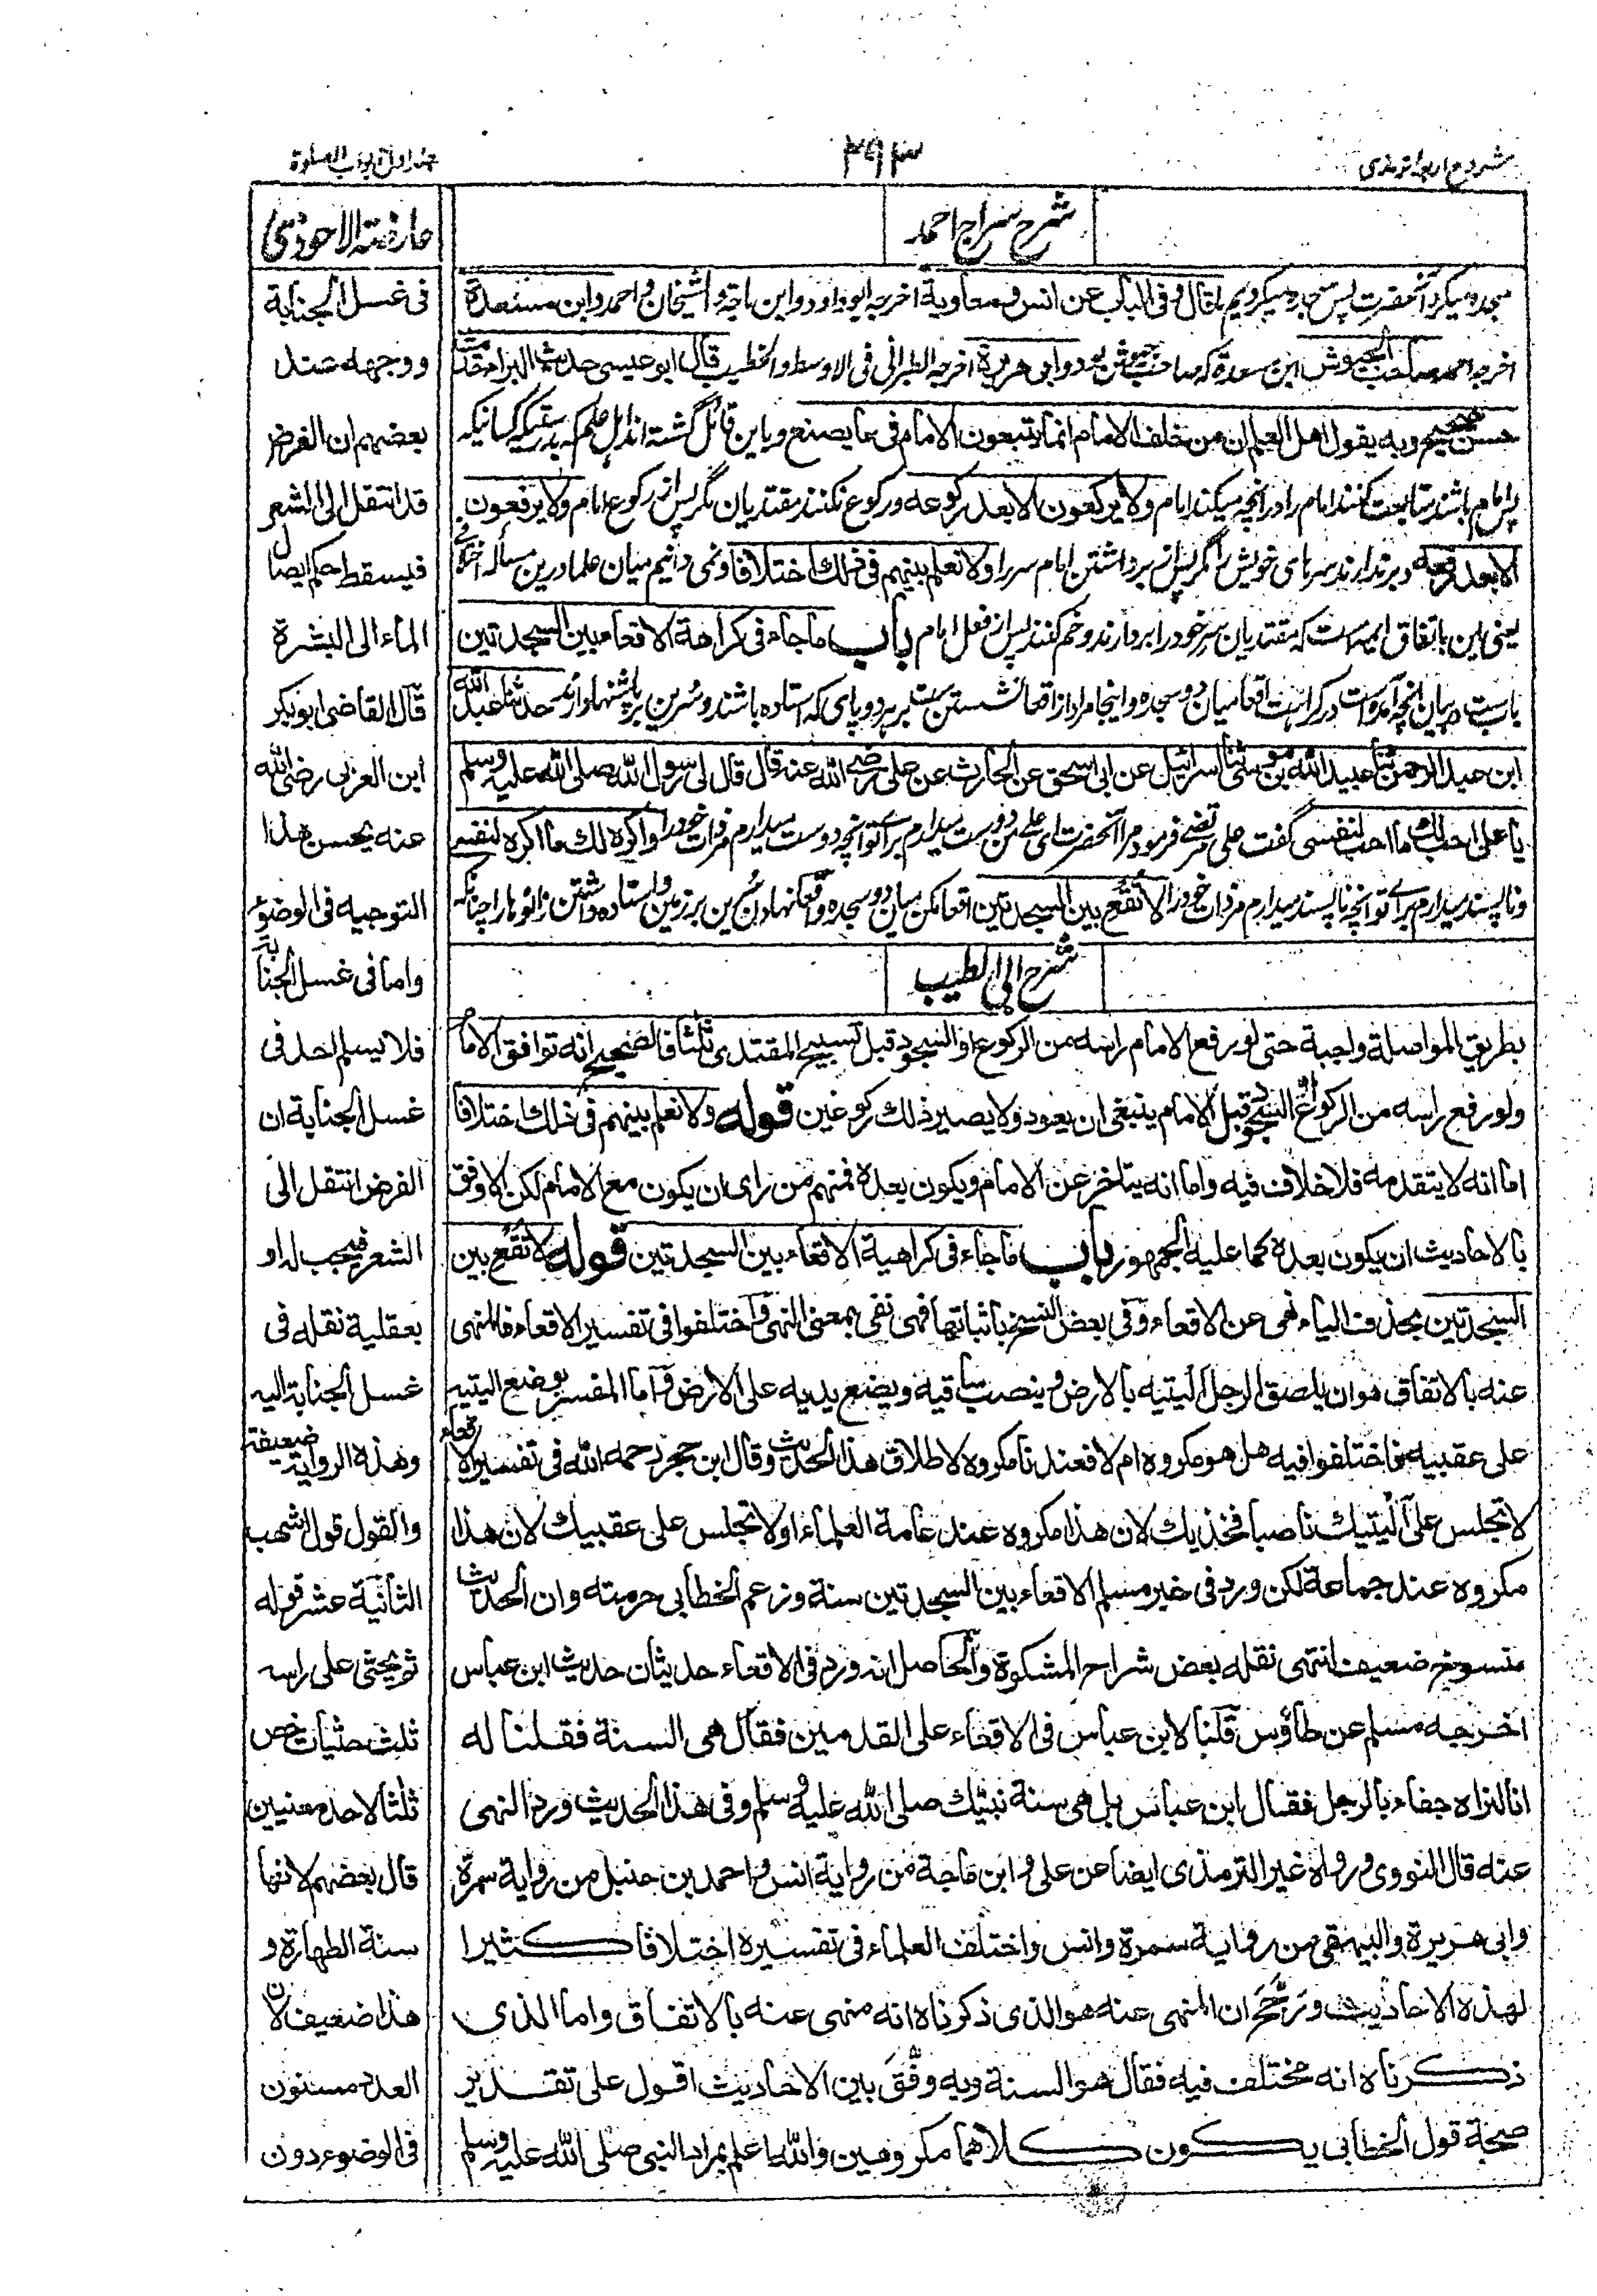 شروح اربعه ترمذی
۳۹۳
جلد اول ابواب الصلوة
شرح سراج احمد
سجده میکرد آنحضرت پس سجده میکردیم ما قال وفی الباب عن انس ومعاویة اخرجه ابوداود وابن ماجة والشیخان واحمد وابن مسعدة
اخرجه احمد صاحب الجیوش ابن مسعدة که صاحب جیوش بود وابی هریرة اخرجه الطبرانی فی الاوسط والخطیب قال ابو عیسی حدیث البراء حدیث
حسن صحیح وبه یقول اهل العلم ان من خلف الامام انما یتبعون الامام فی ما یصنع وباین قائل گشته اند اهل علم که بدرستیکه کسانیکه
پس امام باشند متابعت کنند امام را در آنچه میکند امام ولا یرکعون الا بعد رکوعه ورکوع نکنند مقتدیان مگر پس از رکوع امام ولا یرفعون
الا بعد رفعه وبر ندارند سرهای خویش را مگر پس از برداشتن امام سر را ولا نعلم بینهم فی ذلك اختلافا ونمی دانیم میان علما درین مسأله اختلافی
یعنی این باتفاق ایمه است که مقتدیان سر خود را بردارند وخم کنند پس از فعل امام باب ما جاء فی کراهة الاقعاء بین السجدتین
باب ست در بیان آنچه آمده است در کراهت اقعا میان دو سجده واینجا مراد از اقعا نشستن ست بر هر دو پای که استاده باشند وسرین بر پاشنها وارند حدثنا عبد الله
ابن عبد الرحمن ثنا عبید الله بن موسی ثنا اسرائیل عن ابی اسحق عن الحارث عن علی رضی الله عنه قال قال لی رسول الله صلی الله علیه وسلم
یا علی احب لك ما احب لنفسی گفت علی مرتضی فرمود مرا آنحضرت ای علی من دوست میدارم برای تو آنچه دوست میدارم مر ذات خود را واکره لك ما اکره لنفسی
ونا پسند میدارم برای تو آنچه نا پسند میدارم مر ذات خود را لا تقع بین السجدتین اقعا مکن میان دو سجده واقعا نهادن سرین بر زمین واستاده داشتن زانوها را چنانکه
شرح ابی الطیب
بطریق المواصلة واجبة حتی لو رفع الامام راسه من الرکوع او السجود قبل تسبیح المقتدی ثلثا فالصحیح انه توافق الامام
ولو رفع راسه من الرکوع او السجود قبل الامام ینبغی ان یعود ولا یصیر ذلك رکوعین قوله ولا نعلم بینهم فی ذلك اختلافا
اما انه لا یتقدمه فلا خلاف فیه واما انه یتاخر عن الامام ویکون بعده فمنهم من رای ان یکون مع الامام لکن الاوفق
بالاحادیث ان یکون بعده کما علیه الجمهور باب ما جاء فی کراهیة الاقعاء بین السجدتین قوله لا تقع بین
السجدتین بحذف الیاء نهی عن الاقعاء وفی بعض النسخ باثباتها فهی نفی بمعنی النهی واختلفوا فی تفسیر الاقعاء فالمنهی
عنه بالاتفاق هو ان یلصق الرجل الیتیه بالارض وینصب ساقیه ویضع یدیه علی الارض واما المفسر بوضع الیتیه
علی عقبیه فاختلفوا فیه هل هو مکروه ام لا فعندنا مکروه لاطلاق هذا الحدیث وقال ابن حجر رحمه الله فی تفسیر الاقعاء
لا تجلس علی الیتیك ناصبا فخذیك لان هذا مکروه عند عامة العلماء او لا تجلس علی عقبیك لان هذا
مکروه عند جماعة لکن ورد فی خبر مسلم الاقعاء بین السجدتین سنة وزعم الخطابی حرمته وان الحدیث
منسوخ ضعیف انتهی نقله بعض شراح المشکوة والحاصل انه ورد فی الاقعاء حدیثان حدیث ابن عباس
اخرجه مسلم عن طاؤس قلنا لابن عباس فی الاقعاء علی القدمین فقال هی السنة فقلنا له
انا لنراه جفاء بالرجل فقال ابن عباس بل هی سنة نبیك صلی الله علیه وسلم وفی هذا الحدیث ورد النهی
عنه قال النووی ورواه غیر الترمذی ایضا عن علی وابن ماجة من روایة انس واحمد بن حنبل من روایة سمرة
وابی هریرة والبیهقی من روایة سمرة وانس واختلف العلماء فی تفسیره اختلافا کثیرا
لهذه الاحادیث ورجح ان المنهی عنه هو الذی ذکرناه انه منهی عنه بالاتفاق واما الذی
ذکرناه انه مختلف فیه فقال هو السنة وبه وفق بین الاحادیث اقول علی تقدیر
صحة قول الخطابی یکون کلاهما مکروهین والله اعلم بمراد النبی صلی الله علیه وسلم
عارضة الاحوذی
فی غسل الجنابة
ووجهه عند
بعضهم ان الفرض
قد انتقل الی الشعر
فیسقط حکم ایصال
الماء الی البشرة
قال القاضی ابوبکر
ابن العربی رضی الله
عنه یحسن هذا
التوجیه فی الوضوء
واما فی غسل الجنابة
فلا یسلم احد فی
غسل الجنابة ان
الفرض انتقل الی
الشعر فیجب له او
بعقلیة نقله فی
غسل الجنابة الیه
وهذه الروایة ضعیفة
والقول قول اشهب
الثانیة عشر قوله
ثم یحثی علی راسه
ثلث حثیات خص
ثلثا لاحد معنیین
قال بعضهم لانها
سنة الطهارة و
هذا ضعیف لان
العدد مسنون
فی الوضوء دون